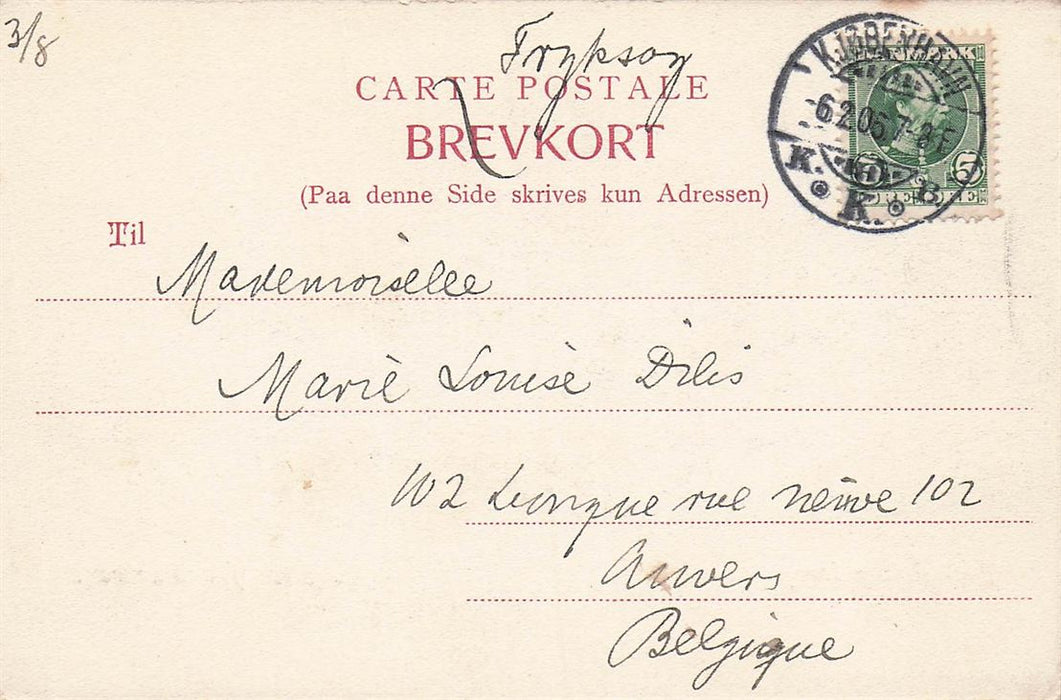 3/8
Tryksag
CARTE POSTALE
BREVKORT
(Paa denne Side skrives kun Adressen)
KJØBENHAVN
6.2.06 7-8 F
K. K. B.
5 5
Til
Mademoiselle
Marié Louisè Dilis
102 Longue rue neuve 102
Anvers
Belgique